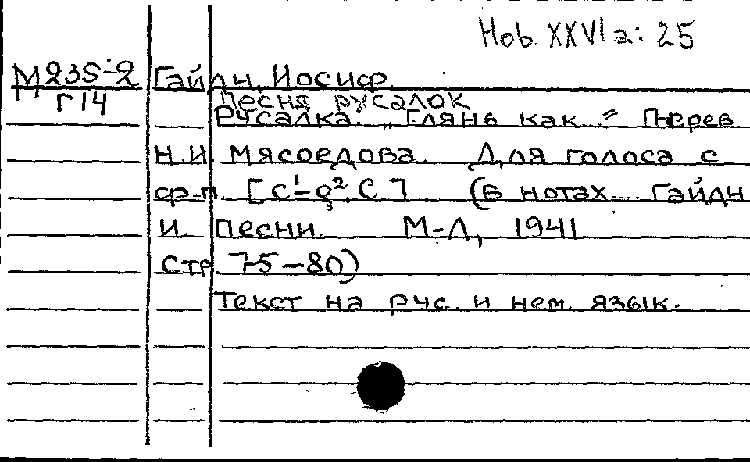 Hob. XXVIa: 25
М235-2 Гайдн, Иосиф.
Г14
Песня русалок
Русалка. „Глянь как =" Перев
Н.И. Мясоедова. Для голоса с
ф-п. [c¹-g², C] (в нотах: Гайдн
И. Песни. М-Л, 1941
стр. 75-80)
Текст на рус. и нем. язык.